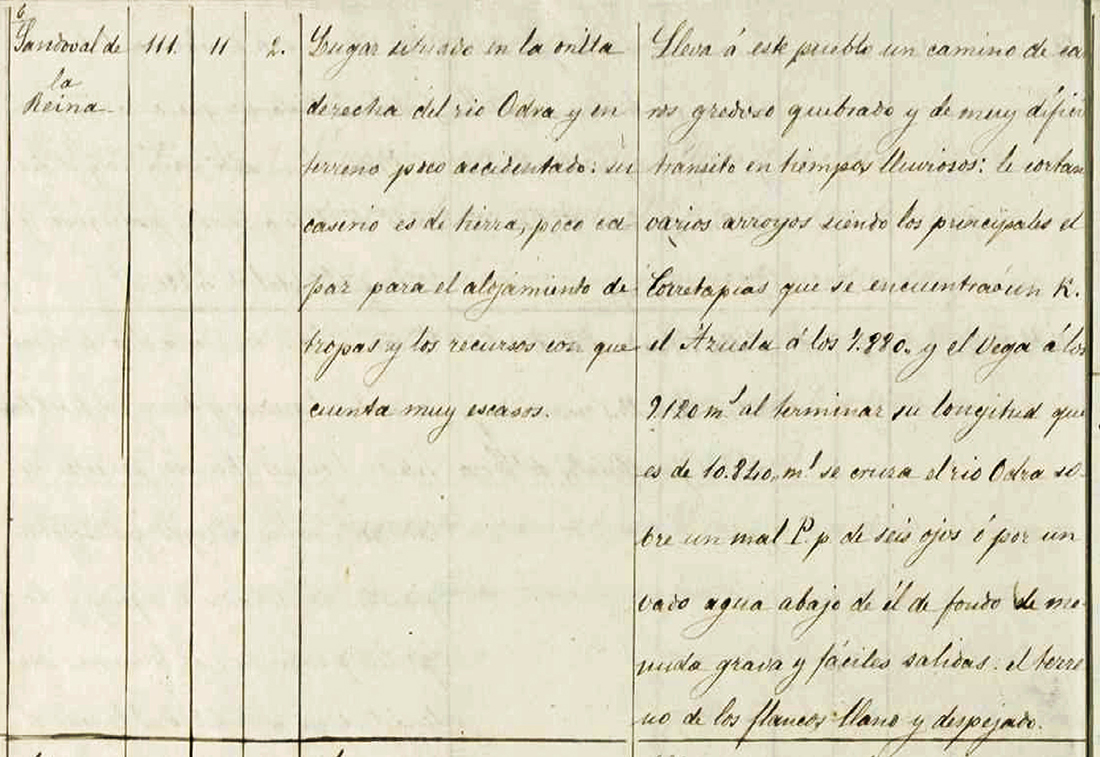 6
Sandoval de
la
Reina
111
11
2.
Lugar situado en la orilla
derecha del rio Odra y en
terreno poco accidentado: su
caserio es de tierra, poco ca-
paz para el alojamiento de
tropas y los recursos con que
cuenta muy escasos.
Lleva á este pueblo un camino de ca-
rros gredoso quebrado y de muy dificil
tránsito en tiempos lluviosos: le cortan
varios arroyos siendo los principales el
Torretapias que se encuentra á un K.
el Azuela á los 7.880. y el Vega á los
9.120 m.s al terminar su longitud que
es de 10.840, m.s se cruza el rio Odra so-
bre un mal P. p de seis ojos ó por un
vado agua abajo de él de fondo de me-
nuda grava y fáciles salidas: el terre-
no de los flancos llano y despejado.